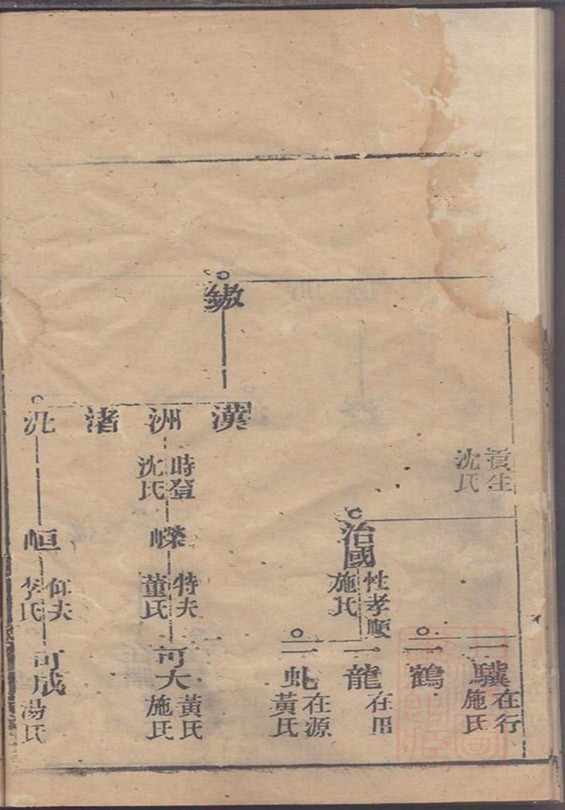 養生
沈氏
在行
一驥
施氏
一鶴
治國
性孝順
施氏
在田
一龍
在源
一虬
黃氏
鏾
漢
洲
時登
沈氏
嶸
特夫
董氏
可大
黃氏
施氏
渚
沘
峘
仰夫
李氏
可成
湯氏